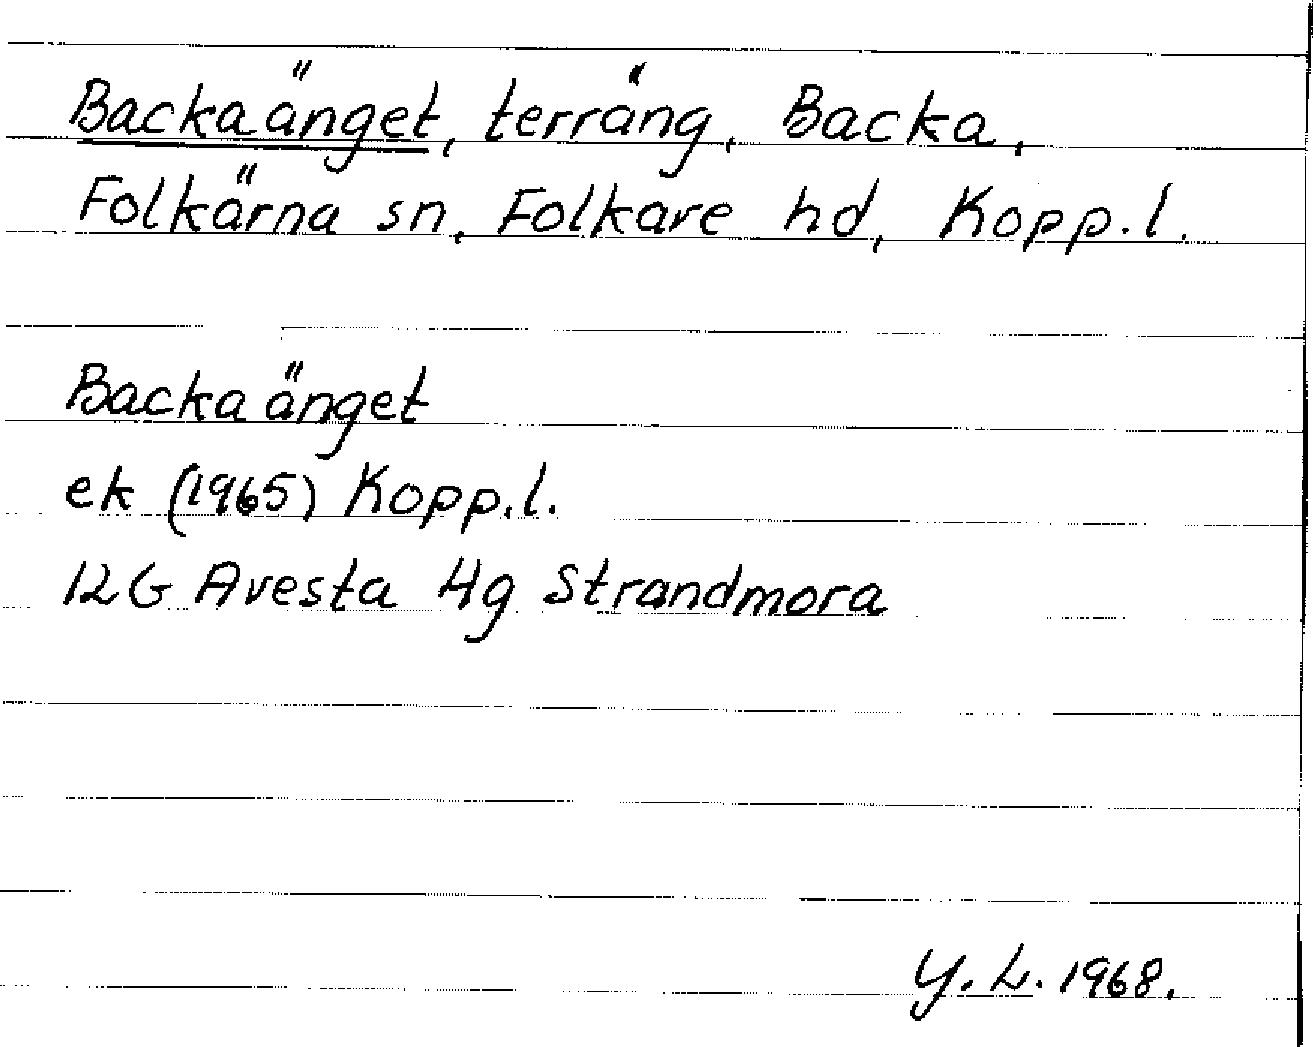 Backaänget, terräng, Backa,
Folkärna sn, Folkare hd, Kopp.l.
Backaänget
ek (1965) Kopp.l.
12G Avesta 4g Strandmora
Y.L. 1968.